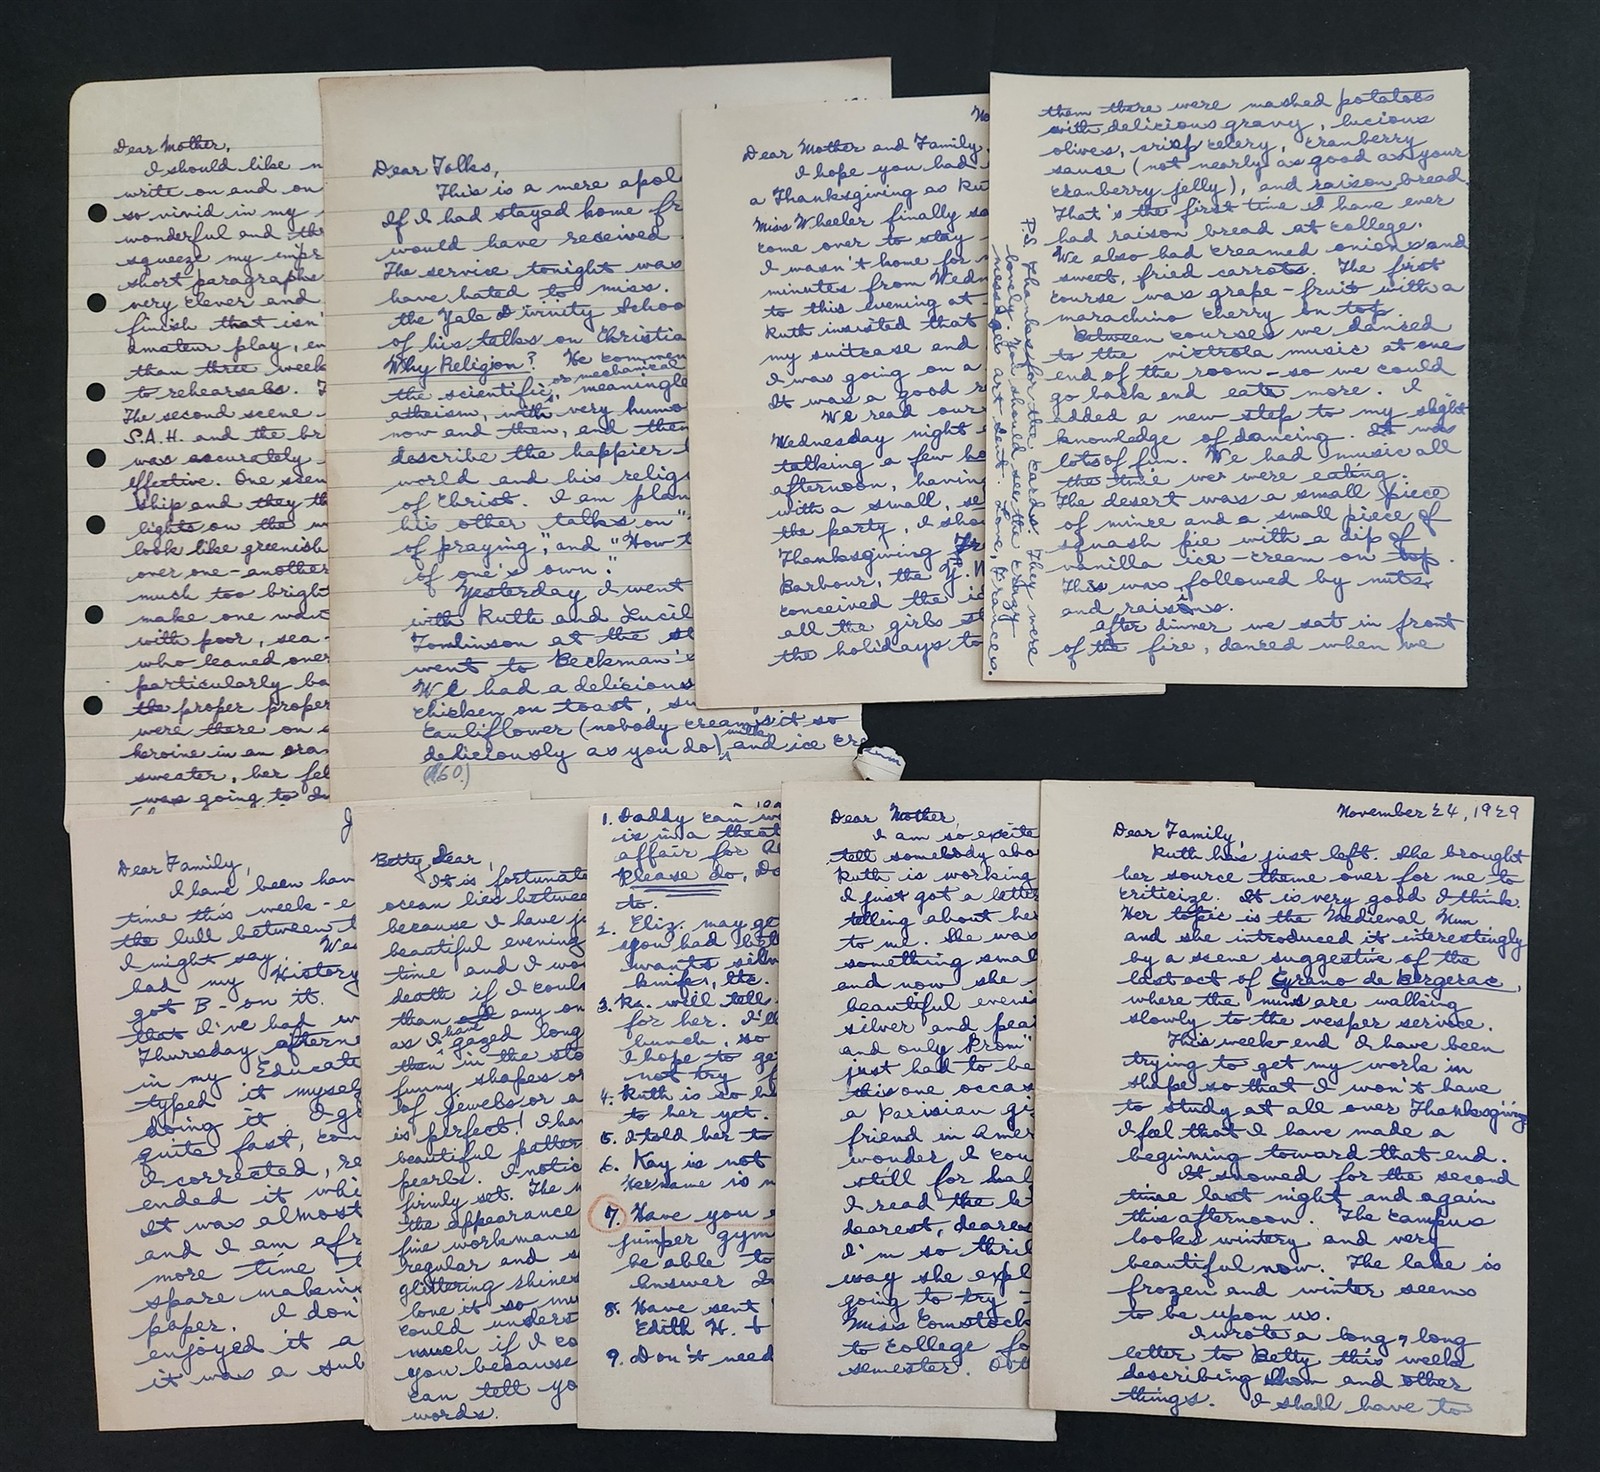 Dear Mother,
I should like
write on and on
so vivid in my
wonderful and
squeeze my
short paragraphs
very clever and
finish that isn'
amateur play,
than three week
to rehearsals.
The second scene
S.A.H. and the
was accurately
effective. One
ship and they
lights on the
look like greenish
over one-another
much too bright
make one
with poor, sea-
who leaned over
particularly
the proper
were there on
heroine in an
sweater, her
was going to
Dear Folks,
This is a mere apol
If I had stayed home
would have received
The service tonight was
have hated to miss.
the Yale Divinity Schoo
of his talks on Christia
Why Religion? He commen
the scientific, or mechanical meaningle
atheism, with very humo
now and then, and then
describe the happier
world and his relig
of Christ. I am plan
his other talks on "
of praying," and "How t
of one's own."
Yesterday I went
with Ruth and Lucil
Tomlinson at the
went to Beckman's
We had a delicious
chicken on toast,
cauliflower (nobody creams it so
deliciously as you do), milk and ice cream
(.60.)
No
Dear Mother and Family,
I hope you had
a Thanksgiving as Ru
Miss Wheeler finally
come over to stay
I wasn't home for
minutes from Wedn
to this evening at
Ruth insisted that
my suitcase and
I was going on a
It was a good
We read our
Wednesday night
talking a few ho
afternoon, having
with a small,
the party, I sho
Thanksgiving
Barbour, the Y.W
conceived the
all the girls
the holidays to
them there were mashed potatoes
with delicious gravy, lucious
olives, crisp celery, cranberry
sause (not nearly as good as your
cranberry jelly), and raison bread
That's the first time I have ever
had raison bread at college.
We also had creamed onions and
sweet, fried carrots. The first
course was grape-fruit with a
marachino cherry on top.
Between courses we danced
to the victrola music at one
end of the room—so we could
go back and eat more. I
added a new step to my slight
knowledge of dancing. It was
lots of fun. We had music all
the time wer were eating.
The desert was a small piece
of mince and a small piece of
squash pie with a dip of
vanilla ice-cream on top.
This was followed by nuts
and raisins.
After dinner we sat in front
of the fire, danced when we
P.S. Thanks for the cards. They were
lovely. You should see the crazy
messages Art sent. Love, Frances.
Dear Family,
I have been hav
time this week-e
the lull between
I might say. Wed
had my History
got B- on it.
that I've had
Thursday afterno
in my Educati
typed it mysel
doing it. I g
quite fast, con
I corrected, re
ended it whi
It was almost
and I am afr
more time
spare making
paper. I don'
enjoyed it a
it was a sub
Betty Dear,
It is fortunate
ocean lies between
because I have
beautiful evening
time and I wo
death if I could
than any on
as I have gazed long
than in the sto
funny shapes or
of jewels or a
is perfect! I ha
beautiful patter
pearls. I notic
firmly set. The
the appearance
fine workmans
regular and
glittering shines
love it so mu
could underst
much if I co
you because
can tell yo
words.
1. Daddy can
is in a theat
affair for
Please do, Da
to.
2. Eliz. may ge
you had
wants
knife, etc.
3. Ka. will tell
for her. I'll
bunch, so
I hope to ge
not try
4. Ruth is so
to her yet.
5. I told her to
6. Kay is not
Her name is
7. Have you
jumper gym
be able to
Answer
8. Have sent
Edith H. +
9. Don't need
Dear Mother,
I am so excite
tell somebody abo
Ruth is working
I just got a lette
telling about her
to me. She was
something smal
and now she
beautiful eveni
silver and pea
and only Prom"
just had to be
this one occas
a Parisian gi
friend in Amer
wonder, I cou
still for hal
I read the le
dearest, deares
I'm so thril
way she expl
going to try
Miss Comstock
to college fo
semester.
November 24, 1929
Dear Family,
Ruth has just left. She brought
her source theme over for me to
criticize. It is very good I think.
Her topic is the Medieval Nun
and she introduced it interestingly
by a scene suggestive of the
last act of Cyrano de Bergerac,
where the nuns are walking
slowly to the vesper service.
This week-end I have been
trying to get my work in
shape so that I won't have
to study at all over Thanksgiving
I feel that I have made a
beginning toward that end.
It snowed for the second
time last night and again
this afternoon. The campus
looks wintery and very
beautiful now. The lake is
frozen and winter seems
to be upon us.
I wrote a long, long
letter to Betty this week
describing Prom and other
things. I shall have to